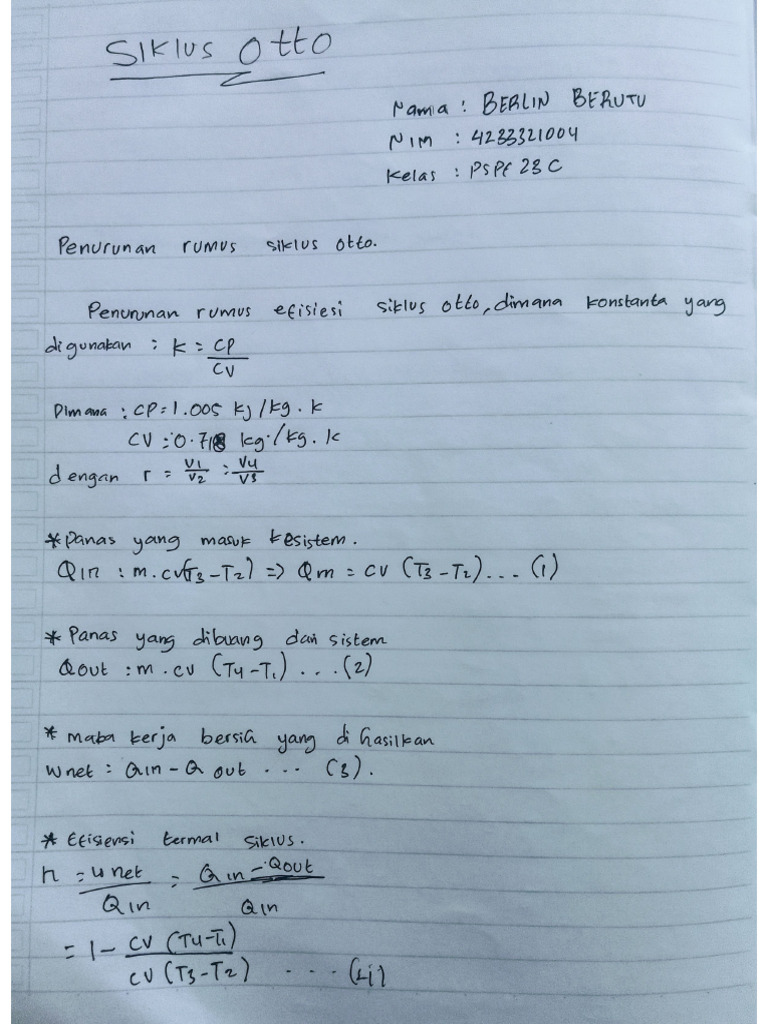 SIKLUS OTTO
Nama : BERLIN BERUTU
NIM : 4233321004
Kelas : PSPF 23 C
Penurunan rumus siklus otto.
Penurunan rumus efisiesi siklus otto, dimana konstanta yang
digunakan : k = CP
CV
Dimana : CP = 1.005 kj/kg.k
CV = 0.718 kg/kg.k
dengan r = V1/V2 = V4/V3
* Panas yang masuk kesistem.
Qin : m.cv(T3-T2) => Qm = cv (T3-T2) ... (1)
* Panas yang dibuang dari sistem
Qout : m.cv (T4-T1) ... (2)
* maba kerja bersih yang di hasilkan
Wnet : Qin - Q out ... (3).
* Efisensi termal siklus.
n = wnet = Qin - Qout
Qin Qin
= 1 - cv (T4-T1)
cv (T3-T2) ... (4)